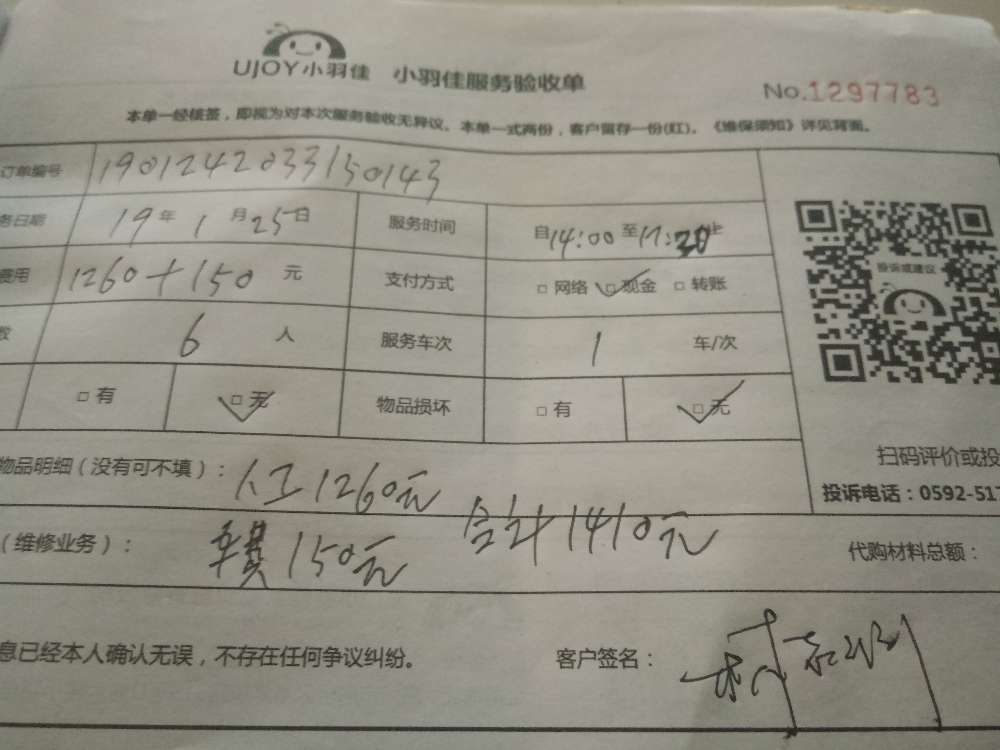 UJOY小羽佳 小羽佳服务验收单
No.1297783
本单一经核签，即视为对本次服务验收无异议。本单一式两份，客户留存一份(红)。《维保须知》详见背面。
订单编号 1901242033150143
务日期 19年1月25日 服务时间 自14:00至17:20止
费用 1260+150元 支付方式 □网络 □现金 □转账
数 6人 服务车次 1 车/次
□有 □无 物品损坏 □有 □无
投诉或建议
扫码评价或投
投诉电话：0592-517
物品明细（没有可不填）： 人工1260元
合计1410元
（维修业务）： 150元
代购材料总额：
息已经本人确认无误，不存在任何争议纠纷。 客户签名：